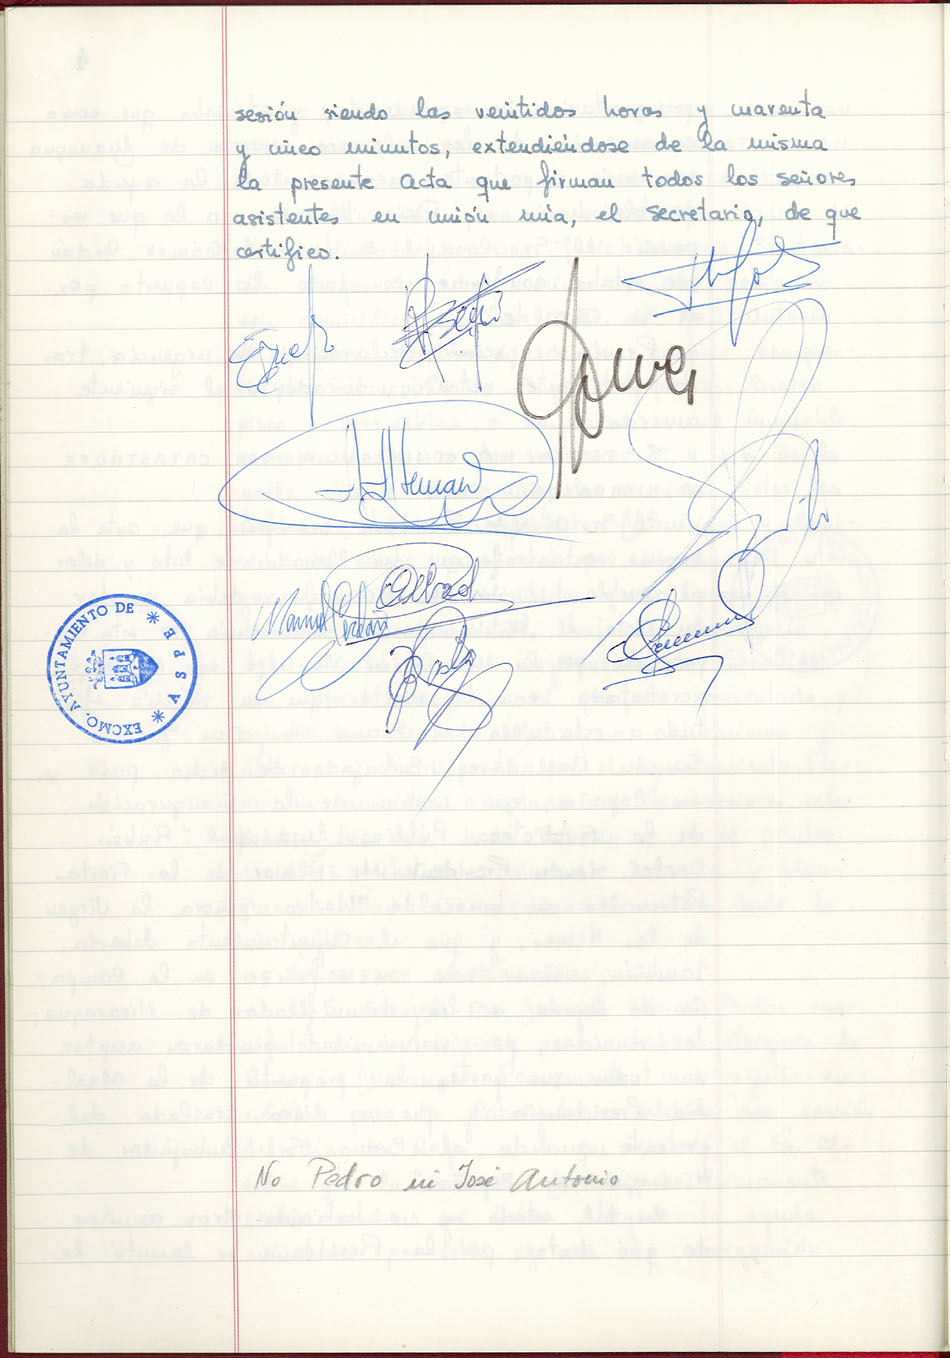 sesión siendo las veintidos horas y cuarenta
y cinco minutos, extendiéndose de la misma
la presente Acta que firman todos los señores
asistentes en unión mia, el secretario, de que
certifico.
Manuel
EXCMO. AYUNTAMIENTO DE
ASPE
No Pedro ni José Antonio